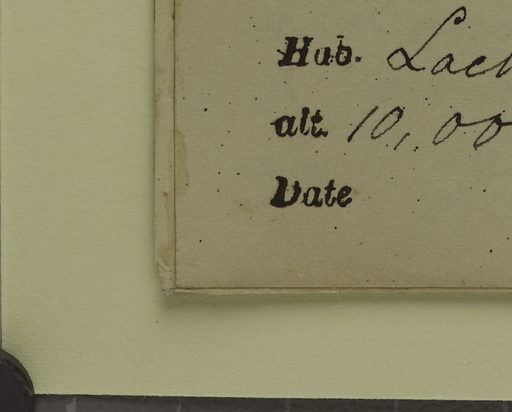 Hab. Lach
alt. 10,00
Date